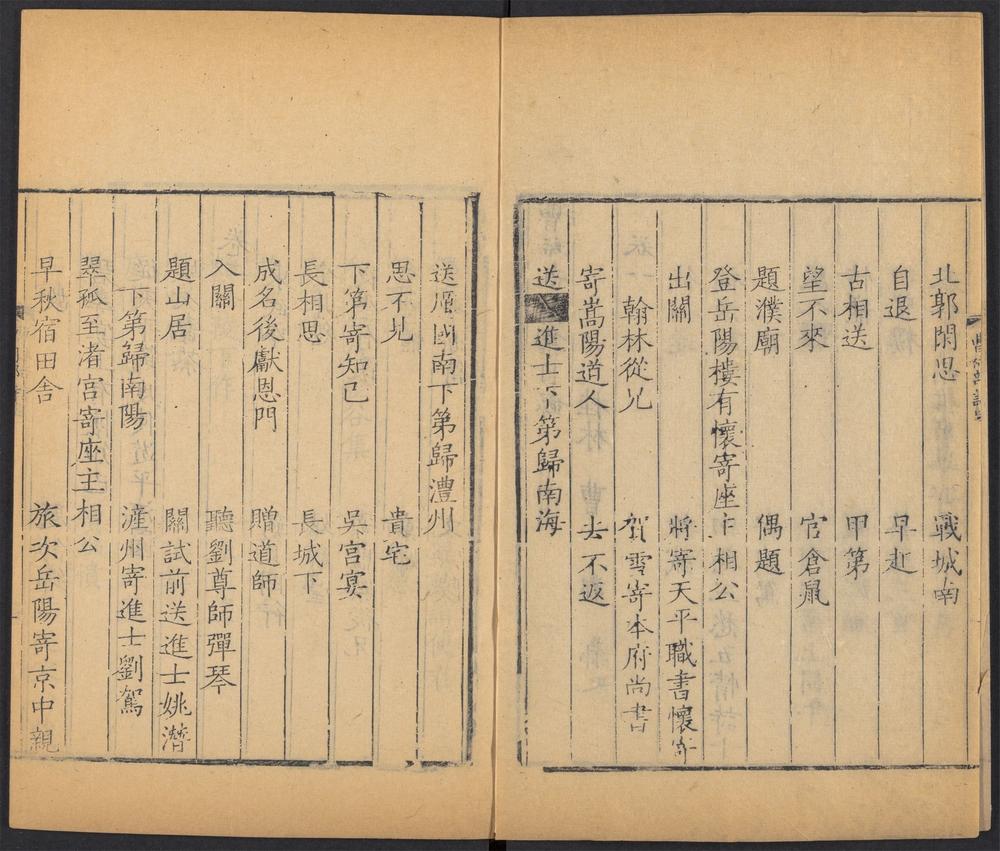 北郭閑思　戰城南
自退　早起
古相送　甲第
望不來　官倉鼠
題濮廟　偶題
登岳陽樓有懷寄座主相公
出關　將寄天平職書懷寄
翰林從兄　賀雪寄本府尚書
寄嵩陽道人　去不返
送進士下第歸南海
送厲圖南下第歸澧州
思不見　貴宅
下第寄知己　吳宮宴
長相思　長城下
成名後獻恩門　贈道師
入關　聽劉尊師彈琴
題山居　關試前送進士姚潛
下第歸南陽　滻州寄進士劉駕
翠孤至渚宮寄座主相公
早秋宿田舍　旅次岳陽寄京中親